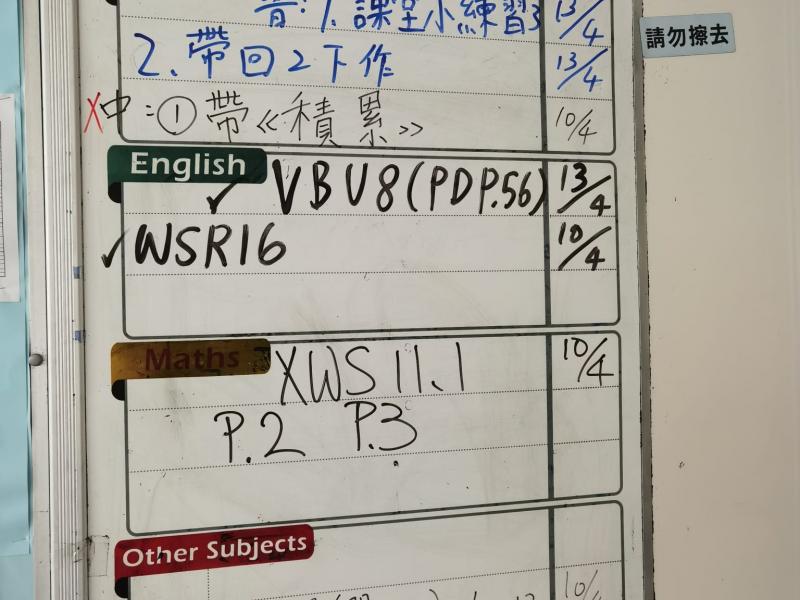 音:1.課堂小練習3 13/4
請勿擦去
2、帶回2下作 13/4
X中:①帶《積累》 10/4
English
✓ VBU8(PDP.56) 13/4
✓WSR16 10/4
Maths
XWS 11.1 10/4
P.2 P.3
Other Subjects
10/4